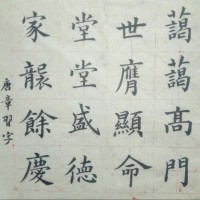 藹藹高門
世膺顯命
堂堂盛德
家襲餘慶
唐章習字